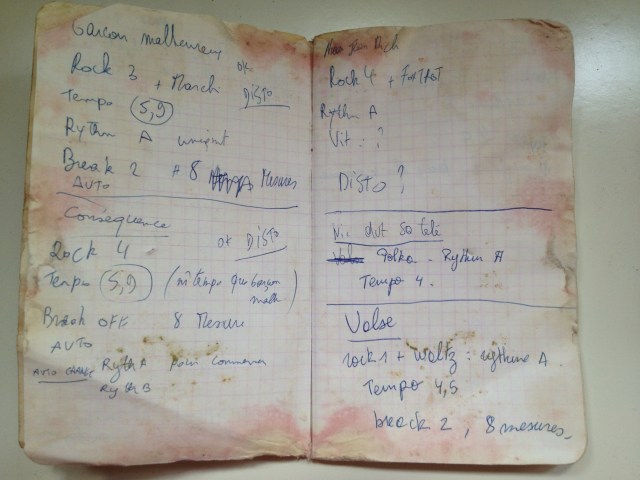 Garçon malheureux
Rock 3 + March OK DISTO
Tempo 5,9
Rythm A
Break 2 8 Mesures
AUTO
Conséquence
Rock 4 OK DISTO
Tempo 5,9 (m tempo que Garçon
malh)
Break OFF 8 Mesure
AUTO
AUTO CHANGE Ryth A pour commencer
Ryth B
Rock 4 + FOXTROT
Rythm A
Vit : ?
DISTO ?
Polka - Rythm A
Tempo 4.
Valse
rock 1 + waltz : rythme A.
Tempo 4,5
break 2, 8 mesures.